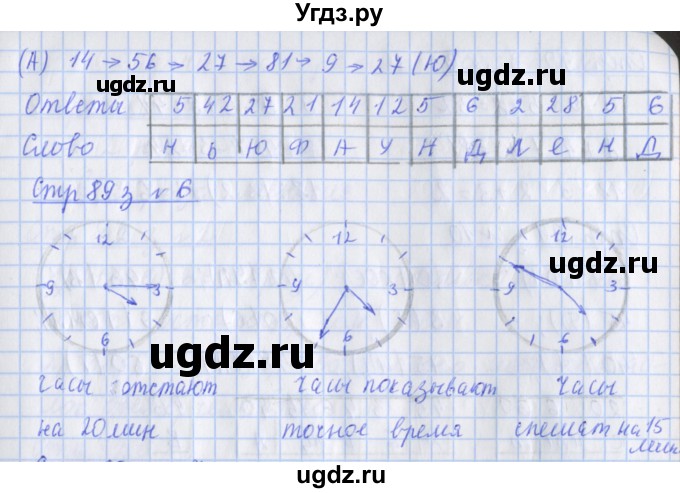 Угдз.ру
(А) 14 → 56 → 27 → 81 → 9 → 27 (Ю)
ugdz.ru ugdz.ru
Ответы 5 42 27 21 14 12 5 6 2 28 5 6
Слово Н Ь Ю Ф А У Н Д Л Е Н Д
Стр 89 з № 6
12 12 12
ugdz.ru
9 3 9 3 9 3
6 6 6
ugdz.ru ugdz.ru
часы отстают часы показывают часы
на 20 мин точное время спешат на 15
мин
ugdz.ru ugdz.ru
ugdz.ru